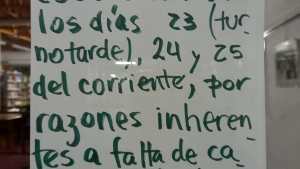 los días 23 (tur_
notarde), 24 y 25
del corriente, por
razones inheren_
tes a falta de ca_